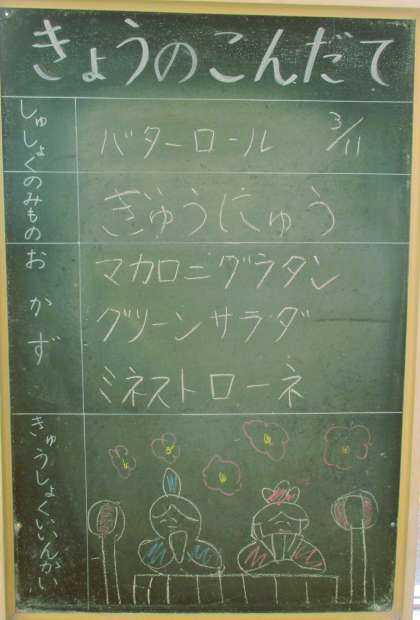 きょうのこんだて
しゅしょく
バターロール 3/11
のみもの
ぎゅうにゅう
おかず
マカロニグラタン
グリーンサラダ
ミネストローネ
きゅうしょくいいんかい